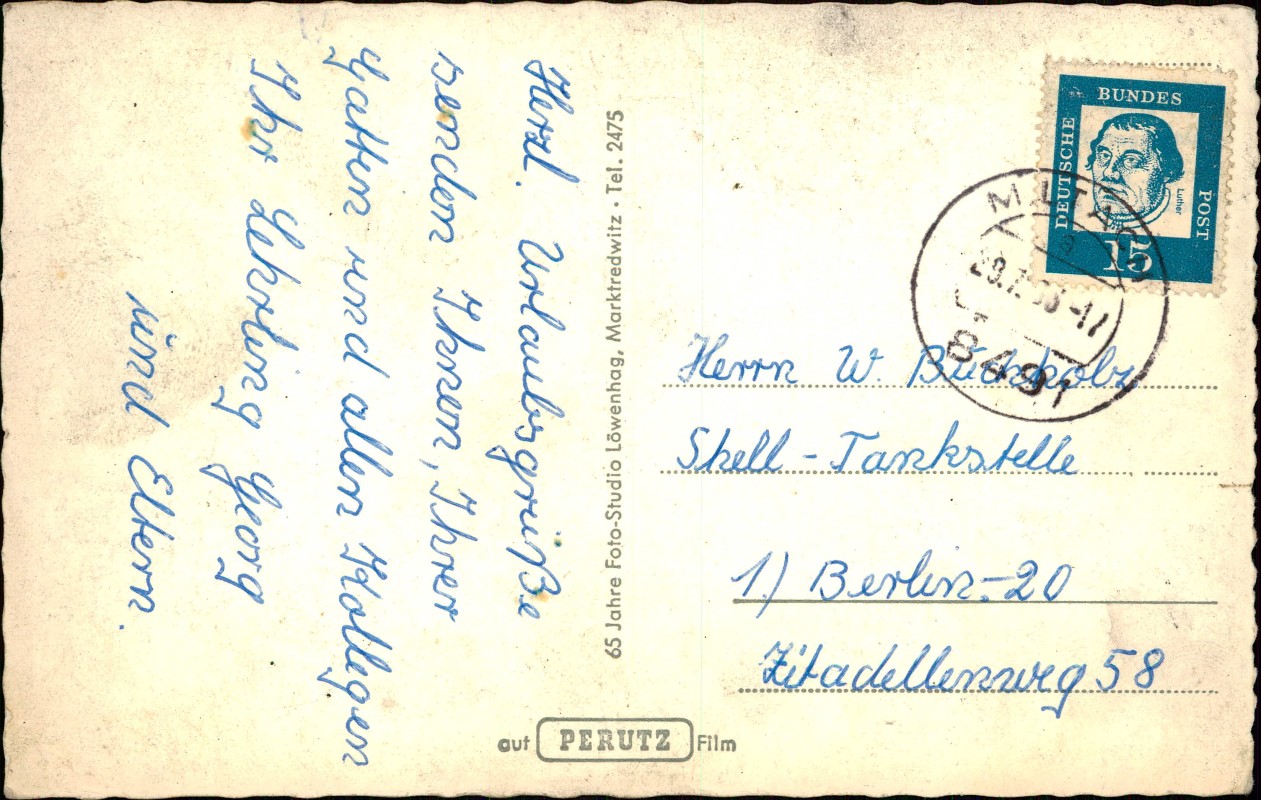 Herzl. Urlaubsgrüße
senden Ihnen, Ihrer
Gattin und allen Kollegen
Ihr Lehrling Georg
und Eltern.
65 Jahre Foto-Studio Löwenhag, Marktredwitz · Tel. 2475
auf PERUTZ Film
DEUTSCHE BUNDES POST
Luther
15
MILTACH
8491
Herrn W. Buckholz
Shell - Tankstelle
1.) Berlin-20
Zitadellenweg 58